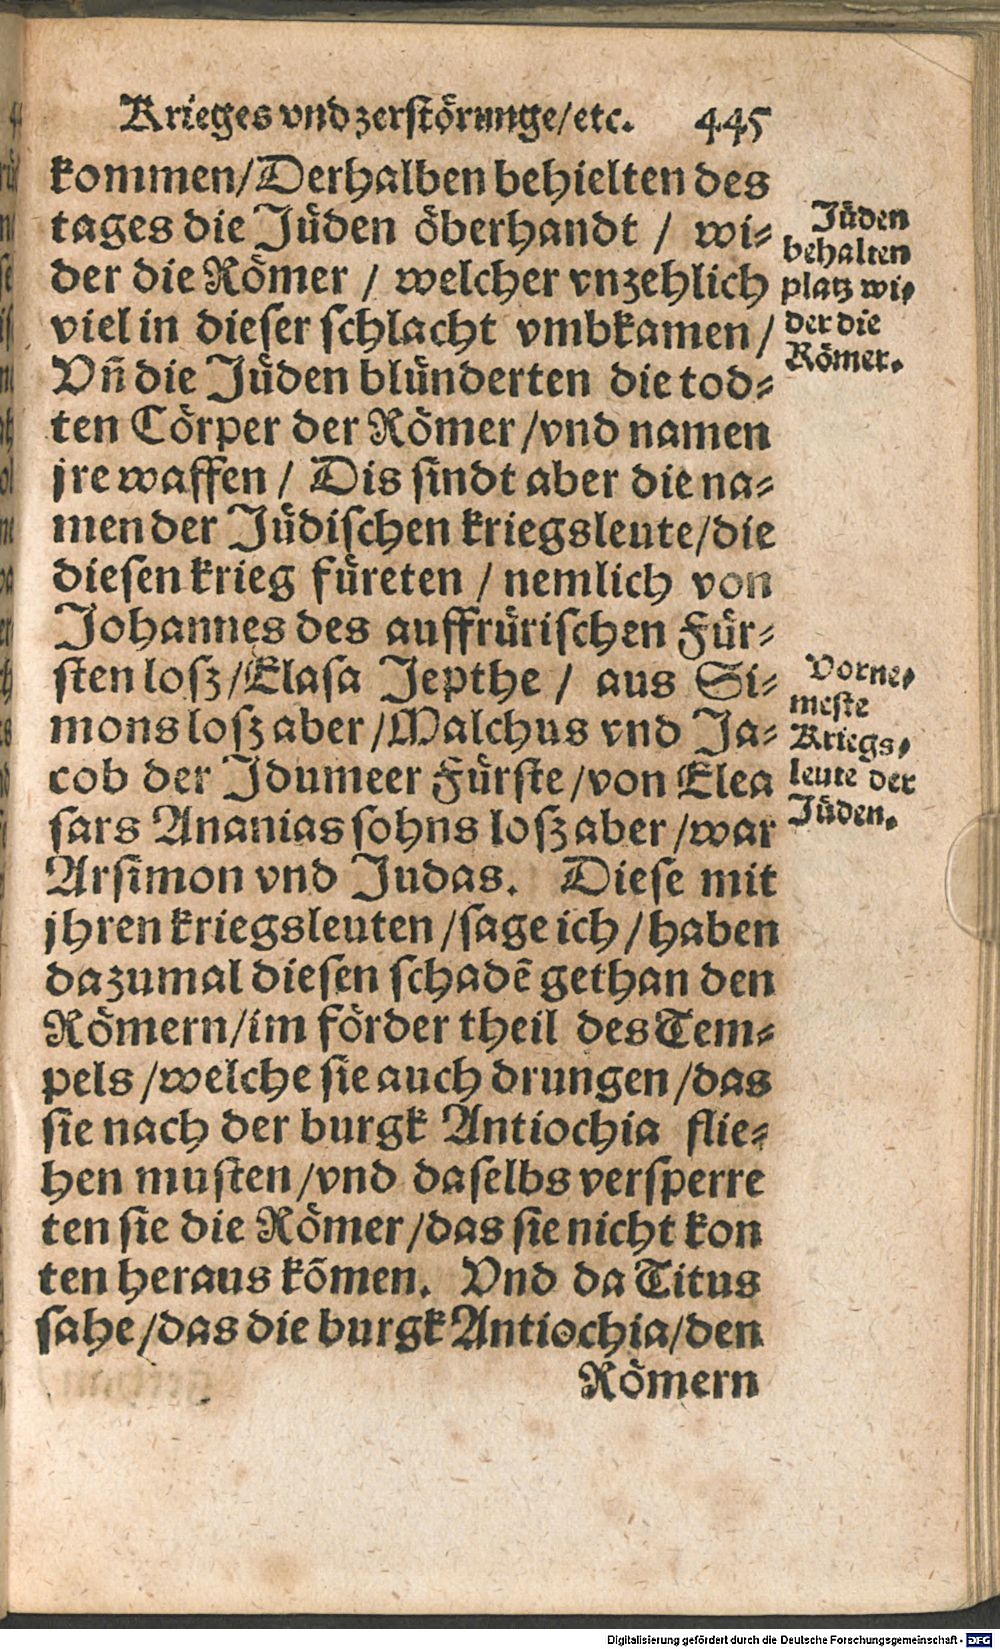 Krieges vnd zerstörunge/etc. 445
kommen/Derhalben behielten des
tages die Jüden öberhandt / wi⸗
der die Römer / welcher vnzehlich
viel in dieser schlacht vmbkamen/
Vñ die Jüden blünderten die tod⸗
ten Cörper der Römer /vnd namen
jre waffen / Dis sindt aber die na⸗
men der Jüdischen kriegsleute/die
diesen krieg füreten / nemlich von
Johannes des auffrürischen Für⸗
sten losz/Elasa Jepthe / aus Si⸗
mons losz aber /Malchus vnd Ja⸗
cob der Jdumeer Fürste/von Elea
sars Ananias sohns losz aber /war
Arsimon vnd Judas. Diese mit
jhren kriegsleuten /sage ich / haben
dazumal diesen schadẽ gethan den
Römern/im förder theil des Tem⸗
pels /welche sie auch drungen /das
sie nach der burgk Antiochia flie⸗
hen musten /vnd daselbs versperre
ten sie die Römer /das sie nicht kon
ten heraus kõmen. Vnd da Titus
sahe /das die burgk Antiochia/den
Römern
Jüden
behalten
platz wi⸗
der die
Römer.
Vorne⸗
meste
Kriegs⸗
leute der
Jüden.
Digitalisierung gefördert durch die Deutsche Forschungsgemeinschaft - DFG